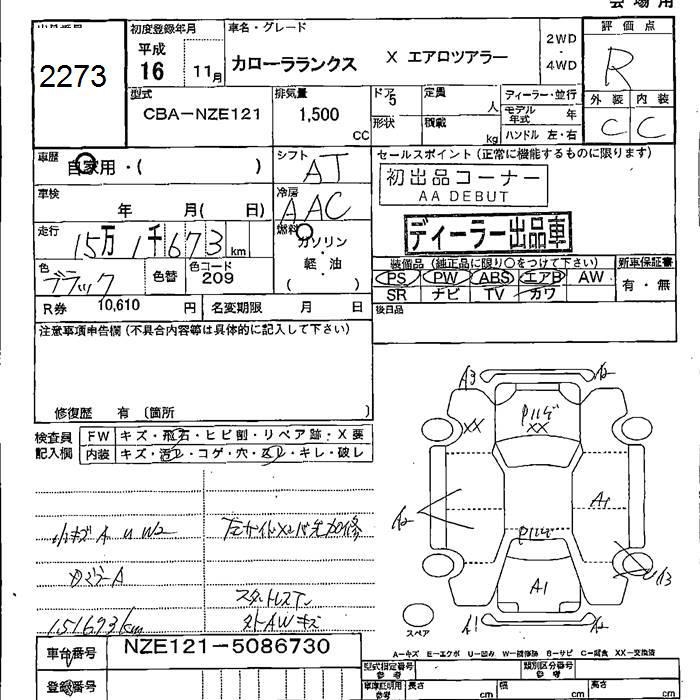 会場用
初度登録年月 車名・グレード 2WD・4WD 評価点
2273
平成16 11月 カローラランクス X エアロツアラー R
型式 排気量 ドア 5 定員 人 ディーラー・並行 外装 内装
CBA-NZE121 1,500 CC モデル年式 年 C C
形状 積載 kg ハンドル 左・右
車歴 自家用・( ) シフト AT セールスポイント(正常に機能するものに限ります)
初出品コーナー
AA DEBUT
車検 年 月( 日) 冷房 AAC
ディーラー出品車
走行 15万1千673km 燃料 ガソリン・軽・油 ( )
装備品(純正品に限り○をつけて下さい) 新車保証書
色 ブラック 色替 色コード 209 PS PW ABS エアB AW 有・無
SR ナビ TV カワ
R券 10,610 円 名変期限 月 日 後日品
注意事項申告欄(不具合内容等は具体的に記入して下さい)
修復歴 有 〔箇所 〕
検査員記入欄 FW キズ・飛石・ヒビ割・リペア跡・X要
内装 キズ・汚レ・コゲ・穴・スレ・キレ・破レ
A3 A2
XX Pリルーフ XX
A2 A1
小キズ A U W2
A1 U A3
スタットレスT
151673km タトAWキズ
A1 A2
スペア
車台番号 NZE121-5086730
A-キズ E-エクボ U-凹み W-補修跡 S-サビ C-腐食 XX-交換済
登録番号 型式指定番号 参考 類別区分番号 参考
車庫証明用 参考 長さ cm 幅 cm 高さ cm